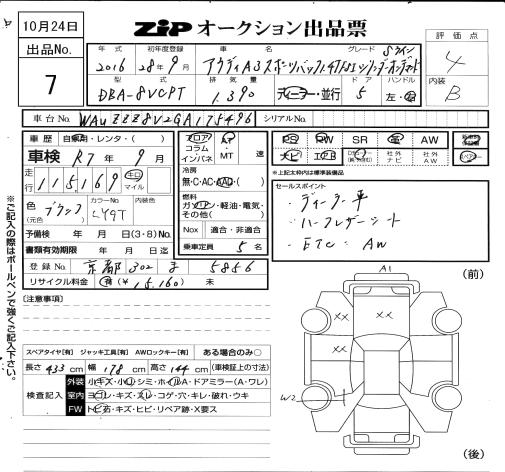 10月24日
ZiP オークション出品票
出品No.
7
年式 初年度登録 車名 グレード Sライン
2016 28年9月 アウディA3スポーツバック1.4TFSIシリンダーオンデマンド
型式 排気量 ドア ハンドル
DBA-8VCPT 1.390 ディーラー・並行 5 左・右
評価点
4
内装
B
車台No. WAUZZZ8V2GA175496 シリアルNo.
車歴 自家用・レンタ・( )
車検 R7年9月
走行 115,169 キロ マイル
色(元色) ブラック カラーNo. LY9T 内装色
予備検 年 月 日(3・8)No.
書類有効期限 年 月 日迄
登録No. 京都 302 ま 5856
リサイクル料金 有(¥15,160) 未
フロア コラム インパネ
AT MT 速
冷房
無・C・AC・AAC・( )
燃料
ガソリン・軽油・電気・その他( )
Nox 適合・非適合
乗車定員 5名
PS PW SR 革 AW
ナビ エアB 社外ナビ 社外AW
*上記太枠内は標準装備品
セールスポイント
・ディーラー車
・ハーフレザーシート
・ETC・AW
※ご記入の際はボールペンで強くご記入下さい。
(注意事項)
スペアタイヤ[有] ジャッキ工具[有] AWロックキー[有] ある場合のみ○
長さ433cm 幅178cm 高さ144cm (車検証上の寸法)
検査記入
外装 小キズ・小凹・シミ・ホイルA・ドアミラー(A・ワレ)
室内 ヨゴレ・キズ・スレ・コゲ・穴・キレ・破れ・ウキ
FW トビ石・キズ・ヒビ・リペア跡・X要ス
A1
(前)
XX
XX
XX
W2
(後)